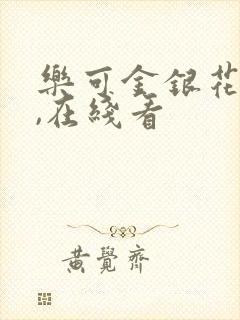 樂可金銀花
,在綫看
黄覺齊